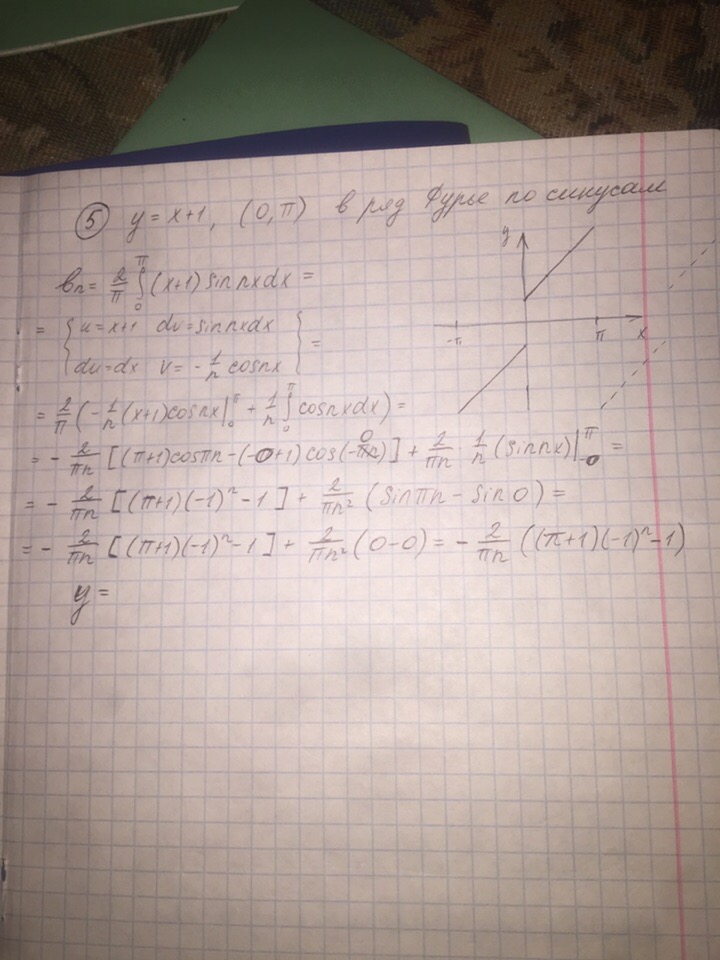 ⑤ y = x+1, (0,π) в ряд Фурье по синусам
y
-π π x
bn = 2/π ∫₀^π (x+1) sin nx dx =
= { u = x+1 dv = sin nx dx
du = dx v = - 1/n cos nx } =
= 2/π (- 1/n (x+1) cos nx |₀^π + 1/n ∫₀^π cos nx dx) =
= - 2/πn [(π+1) cos πn - (-0+1) cos 0] + 2/πn · 1/n (sin nx) |₀^π =
= - 2/πn [(π+1)(-1)ⁿ - 1] + 2/πn² (sin πn - sin 0) =
= - 2/πn [(π+1)(-1)ⁿ - 1] + 2/πn² (0-0) = - 2/πn ((π+1)(-1)ⁿ - 1)
y =